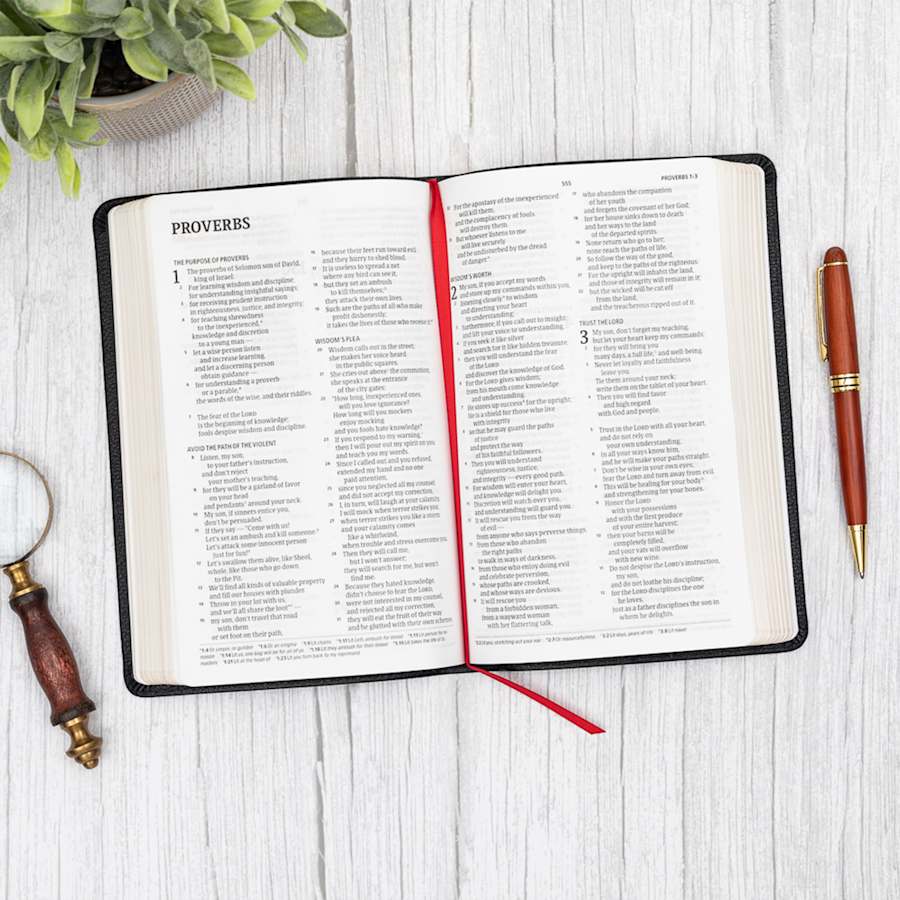 PROVERBS
THE PURPOSE OF PROVERBS
1 The proverbs of Solomon son of David,
king of Israel:
2 For learning wisdom and discipline;
for understanding insightful sayings;
3 for receiving prudent instruction
in righteousness, justice, and integrity;
4 for teaching shrewdness
to the inexperienced,
knowledge and discretion
to a young man —
5 let a wise person listen
and increase learning,
and let a discerning person
obtain guidance —
6 for understanding a proverb
or a parable,
the words of the wise, and their riddles.
7 The fear of the LORD
is the beginning of knowledge;
fools despise wisdom and discipline.
AVOID THE PATH OF THE VIOLENT
8 Listen, my son,
to your father's instruction,
and don't reject
your mother's teaching,
9 for they will be a garland of favor
on your head
and pendants around your neck.
10 My son, if sinners entice you,
don't be persuaded.
11 If they say — "Come with us!
Let's set an ambush and kill someone.
Let's attack some innocent person
just for fun!
12 Let's swallow them alive, like Sheol,
whole, like those who go down
to the Pit.
13 We'll find all kinds of valuable property
and fill our houses with plunder.
14 Throw in your lot with us,
and we'll all share the loot" —
15 my son, don't travel that road
with them
or set foot on their path,
16 because their feet run toward evil
and they hurry to shed blood.
17 It is useless to spread a net
where any bird can see it,
18 but they set an ambush
to kill themselves;
they attack their own lives.
19 Such are the paths of all who make
profit dishonestly;
it takes the lives of those who receive it.
WISDOM'S PLEA
20 Wisdom calls out in the street;
she makes her voice heard
in the public squares.
21 She cries out above the commotion;
she speaks at the entrance
of the city gates:
22 "How long, inexperienced ones,
will you love ignorance?
How long will you mockers
enjoy mocking
and you fools hate knowledge?
23 If you respond to my warning,
then I will pour out my spirit on you
and teach you my words.
24 Since I called out and you refused,
extended my hand and no one
paid attention,
25 since you neglected all my counsel
and did not accept my correction,
26 I, in turn, will laugh at your calamity.
I will mock when terror strikes you,
27 when terror strikes you like a storm
and your calamity comes
like a whirlwind,
when trouble and stress overcome you.
28 Then they will call me,
but I won't answer;
they will search for me, but won't
find me.
29 Because they hated knowledge,
didn't choose to fear the LORD,
30 were not interested in my counsel,
and rejected all my correction,
31 they will eat the fruit of their way
and be glutted with their own schemes.
555
PROVERBS 1-3
32 For the apostasy of the inexperienced
will kill them,
and the complacency of fools
will destroy them.
33 But whoever listens to me
will live securely
and be undisturbed by the dread
of danger."
WISDOM'S WORTH
2 My son, if you accept my words
and store up my commands within you,
2 listening closely to wisdom
and directing your heart
to understanding;
3 furthermore, if you call out to insight
and lift your voice to understanding,
4 if you seek it like silver
and search for it like hidden treasure,
5 then you will understand the fear
of the LORD
and discover the knowledge of God.
6 For the LORD gives wisdom;
from his mouth come knowledge
and understanding.
7 He stores up success for the upright;
He is a shield for those who live
with integrity
8 so that he may guard the paths
of justice
and protect the way
of his faithful followers.
9 Then you will understand
righteousness, justice,
and integrity — every good path.
10 For wisdom will enter your heart,
and knowledge will delight you.
11 Discretion will watch over you,
and understanding will guard you.
12 It will rescue you from the way
of evil —
from anyone who says perverse things,
13 from those who abandon
the right paths
to walk in ways of darkness,
14 from those who enjoy doing evil
and celebrate perversion,
15 whose paths are crooked,
and whose ways are devious.
16 It will rescue you
from a forbidden woman,
from a wayward woman
with her flattering talk,
17 who abandons the companion
of her youth
and forgets the covenant of her God;
18 for her house sinks down to death
and her ways to the land
of the departed spirits.
19 None return who go to her;
none reach the paths of life.
20 So follow the way of the good,
and keep to the paths of the righteous.
21 For the upright will inhabit the land,
and those of integrity will remain in it;
22 but the wicked will be cut off
from the land,
and the treacherous ripped out of it.
TRUST THE LORD
3 My son, don't forget my teaching,
but let your heart keep my commands;
2 for they will bring you
many days, a full life, and well-being.
3 Never let loyalty and faithfulness
leave you.
Tie them around your neck;
write them on the tablet of your heart.
4 Then you will find favor
and high regard
with God and people.
5 Trust in the LORD with all your heart,
and do not rely on
your own understanding;
6 in all your ways know him,
and he will make your paths straight.
7 Don't be wise in your own eyes;
fear the LORD and turn away from evil.
8 This will be healing for your body
and strengthening for your bones.
9 Honor the LORD
with your possessions
and with the first produce
of your entire harvest;
10 then your barns will be
completely filled,
and your vats will overflow
with new wine.
11 Do not despise the LORD's instruction,
my son,
and do not loathe his discipline;
12 for the LORD disciplines the one
he loves,
just as a father disciplines the son in
whom he delights.